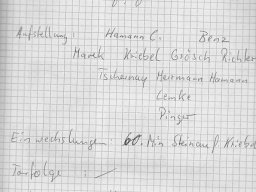 Aufstellung: Hamann C. Benz
Marek Knebel Grösch Richter
Tschernay Herrmann Hamann
Lemke
Pinger
Einwechslungen: 60. Min Steinau f. Knebel
Torfolge : /